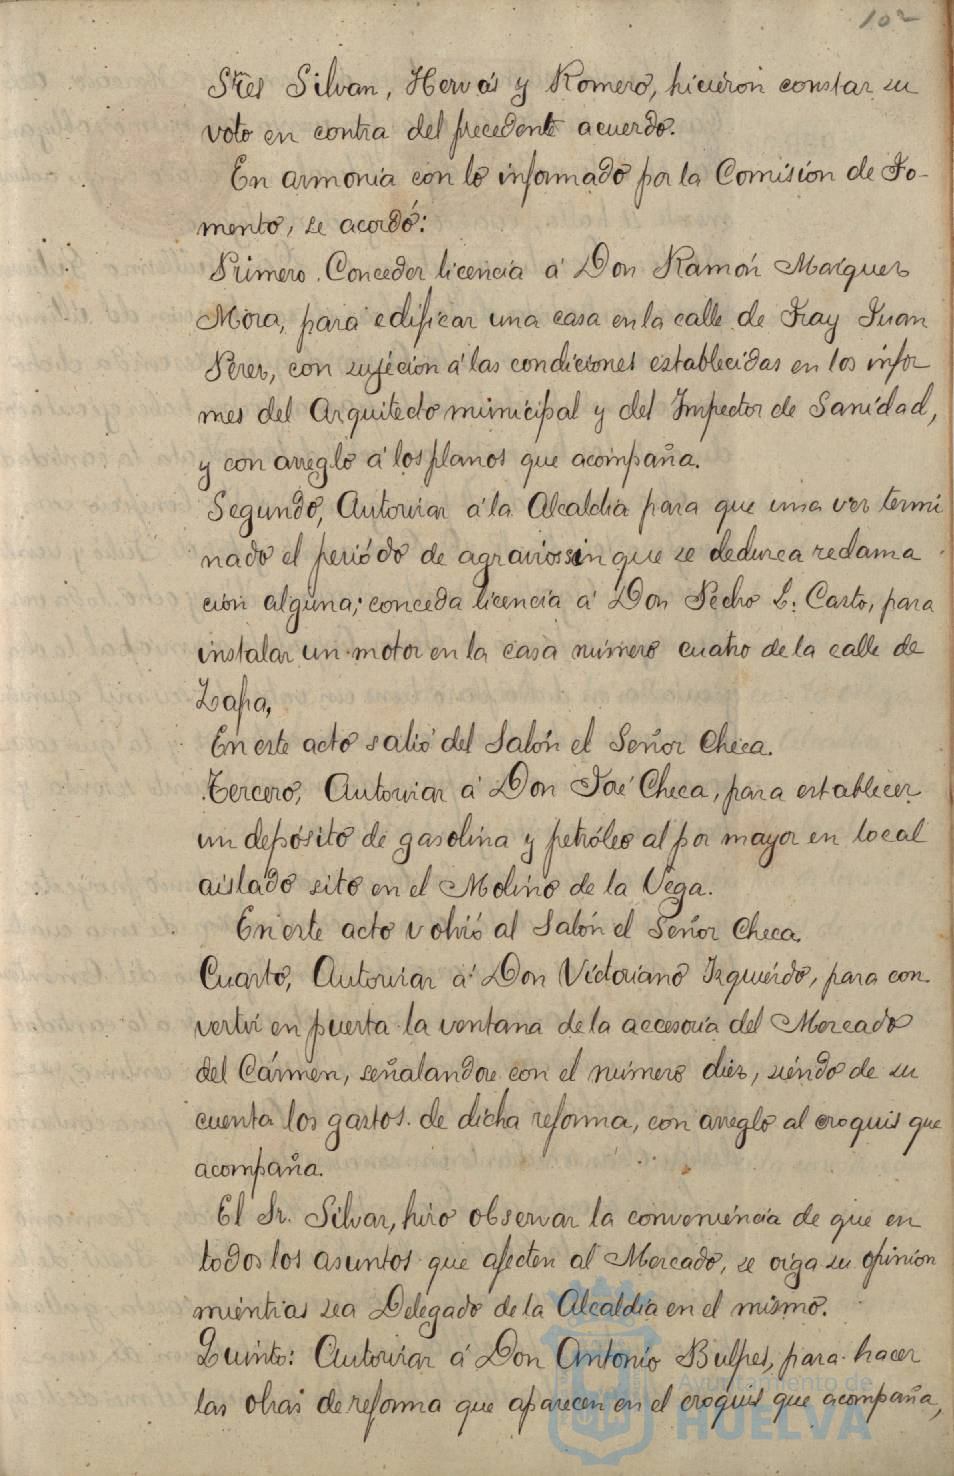 102
Sres Silvan, Hervás y Romero, hicieron constar su
voto en contra del precedente acuerdo.
En armonia con lo informado por la Comisión de Fo-
mento, se acordó:
Primero. Conceder licencia á Don Ramón Márquez
Mora, para edificar una casa en la calle de Fray Juan
Perez, con sujéción á las condiciones establecidas en los infor
mes del Arquitecto municipal y del Inspector de Sanidad,
y con arreglo á los planos que acompaña.
Segundo, Autorizar á la Alcaldia para que una vez termi
nado el periódo de agravios sin que se deduzca reclama
ción alguna; conceda licencia á Don Pedro L. Casto, para
instalar un motor en la casa número cuatro de la calle de
Zafra,
En este acto salió del Salón el Señor Checa.
Tercero, Autorizar á Don José Checa, para establecer
un depósito de gasolina y petróleo al por mayor en local
aislado sito en el Molino de la Vega.
En este acto volvió al Salón el Señor Checa.
Cuarto, Autorizar á Don Victoriano Izquierdo, para con-
vertir en puerta la ventana de la accesoria del Mercado
del Cármen, señalandose con el número diez, siéndo de su
cuenta los gastos de dicha reforma, con arreglo al croquis que
acompaña.
El Sr. Silvar, hizo observar la conveniéncia de que en
todos los asuntos que afecten al Mercado, se oiga su opinion
miéntras sea Delegado de la Alcaldía en el mismo.
Quinto: Autorizar á Don Antonio Bulpes, para hacer
las obras de reforma que aparecen en el croquis que acompaña,
Ayuntamiento de
HUELVA